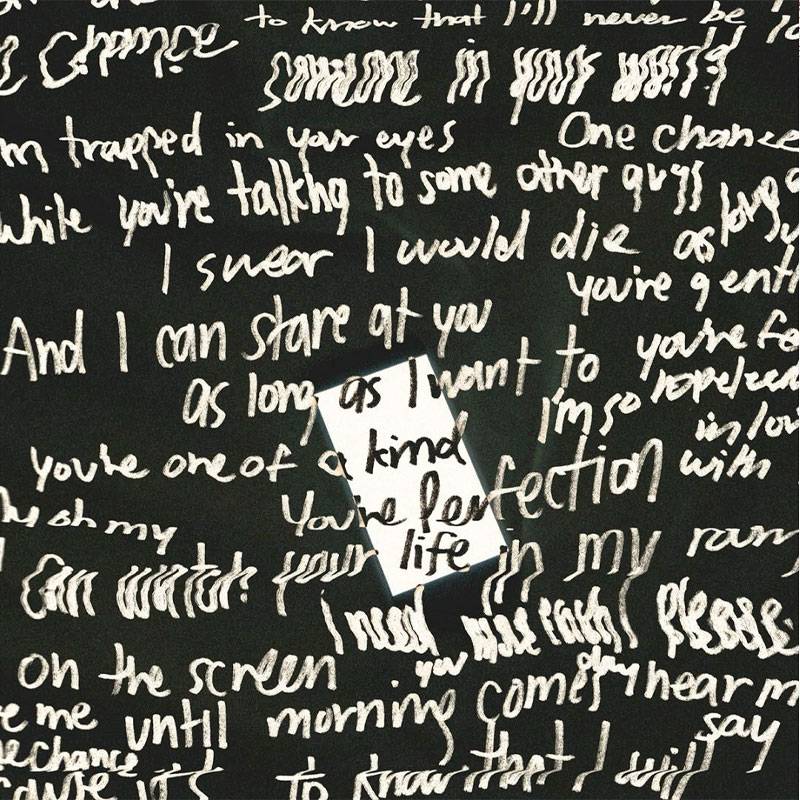 to know that I'll never be
Chance
someone in your world
trapped in your eyes One chance
while you're talking to some other guys
long
I swear I would die as
you're
And I can stare at you
as long as I want to you're
I'm so
in
you're one of a kind
with
You're Perfection
oh my
life in my
Can watch your
I need Please
on the screen
you
day
me until morning comes hear
say
chance
cause it's to know that I will